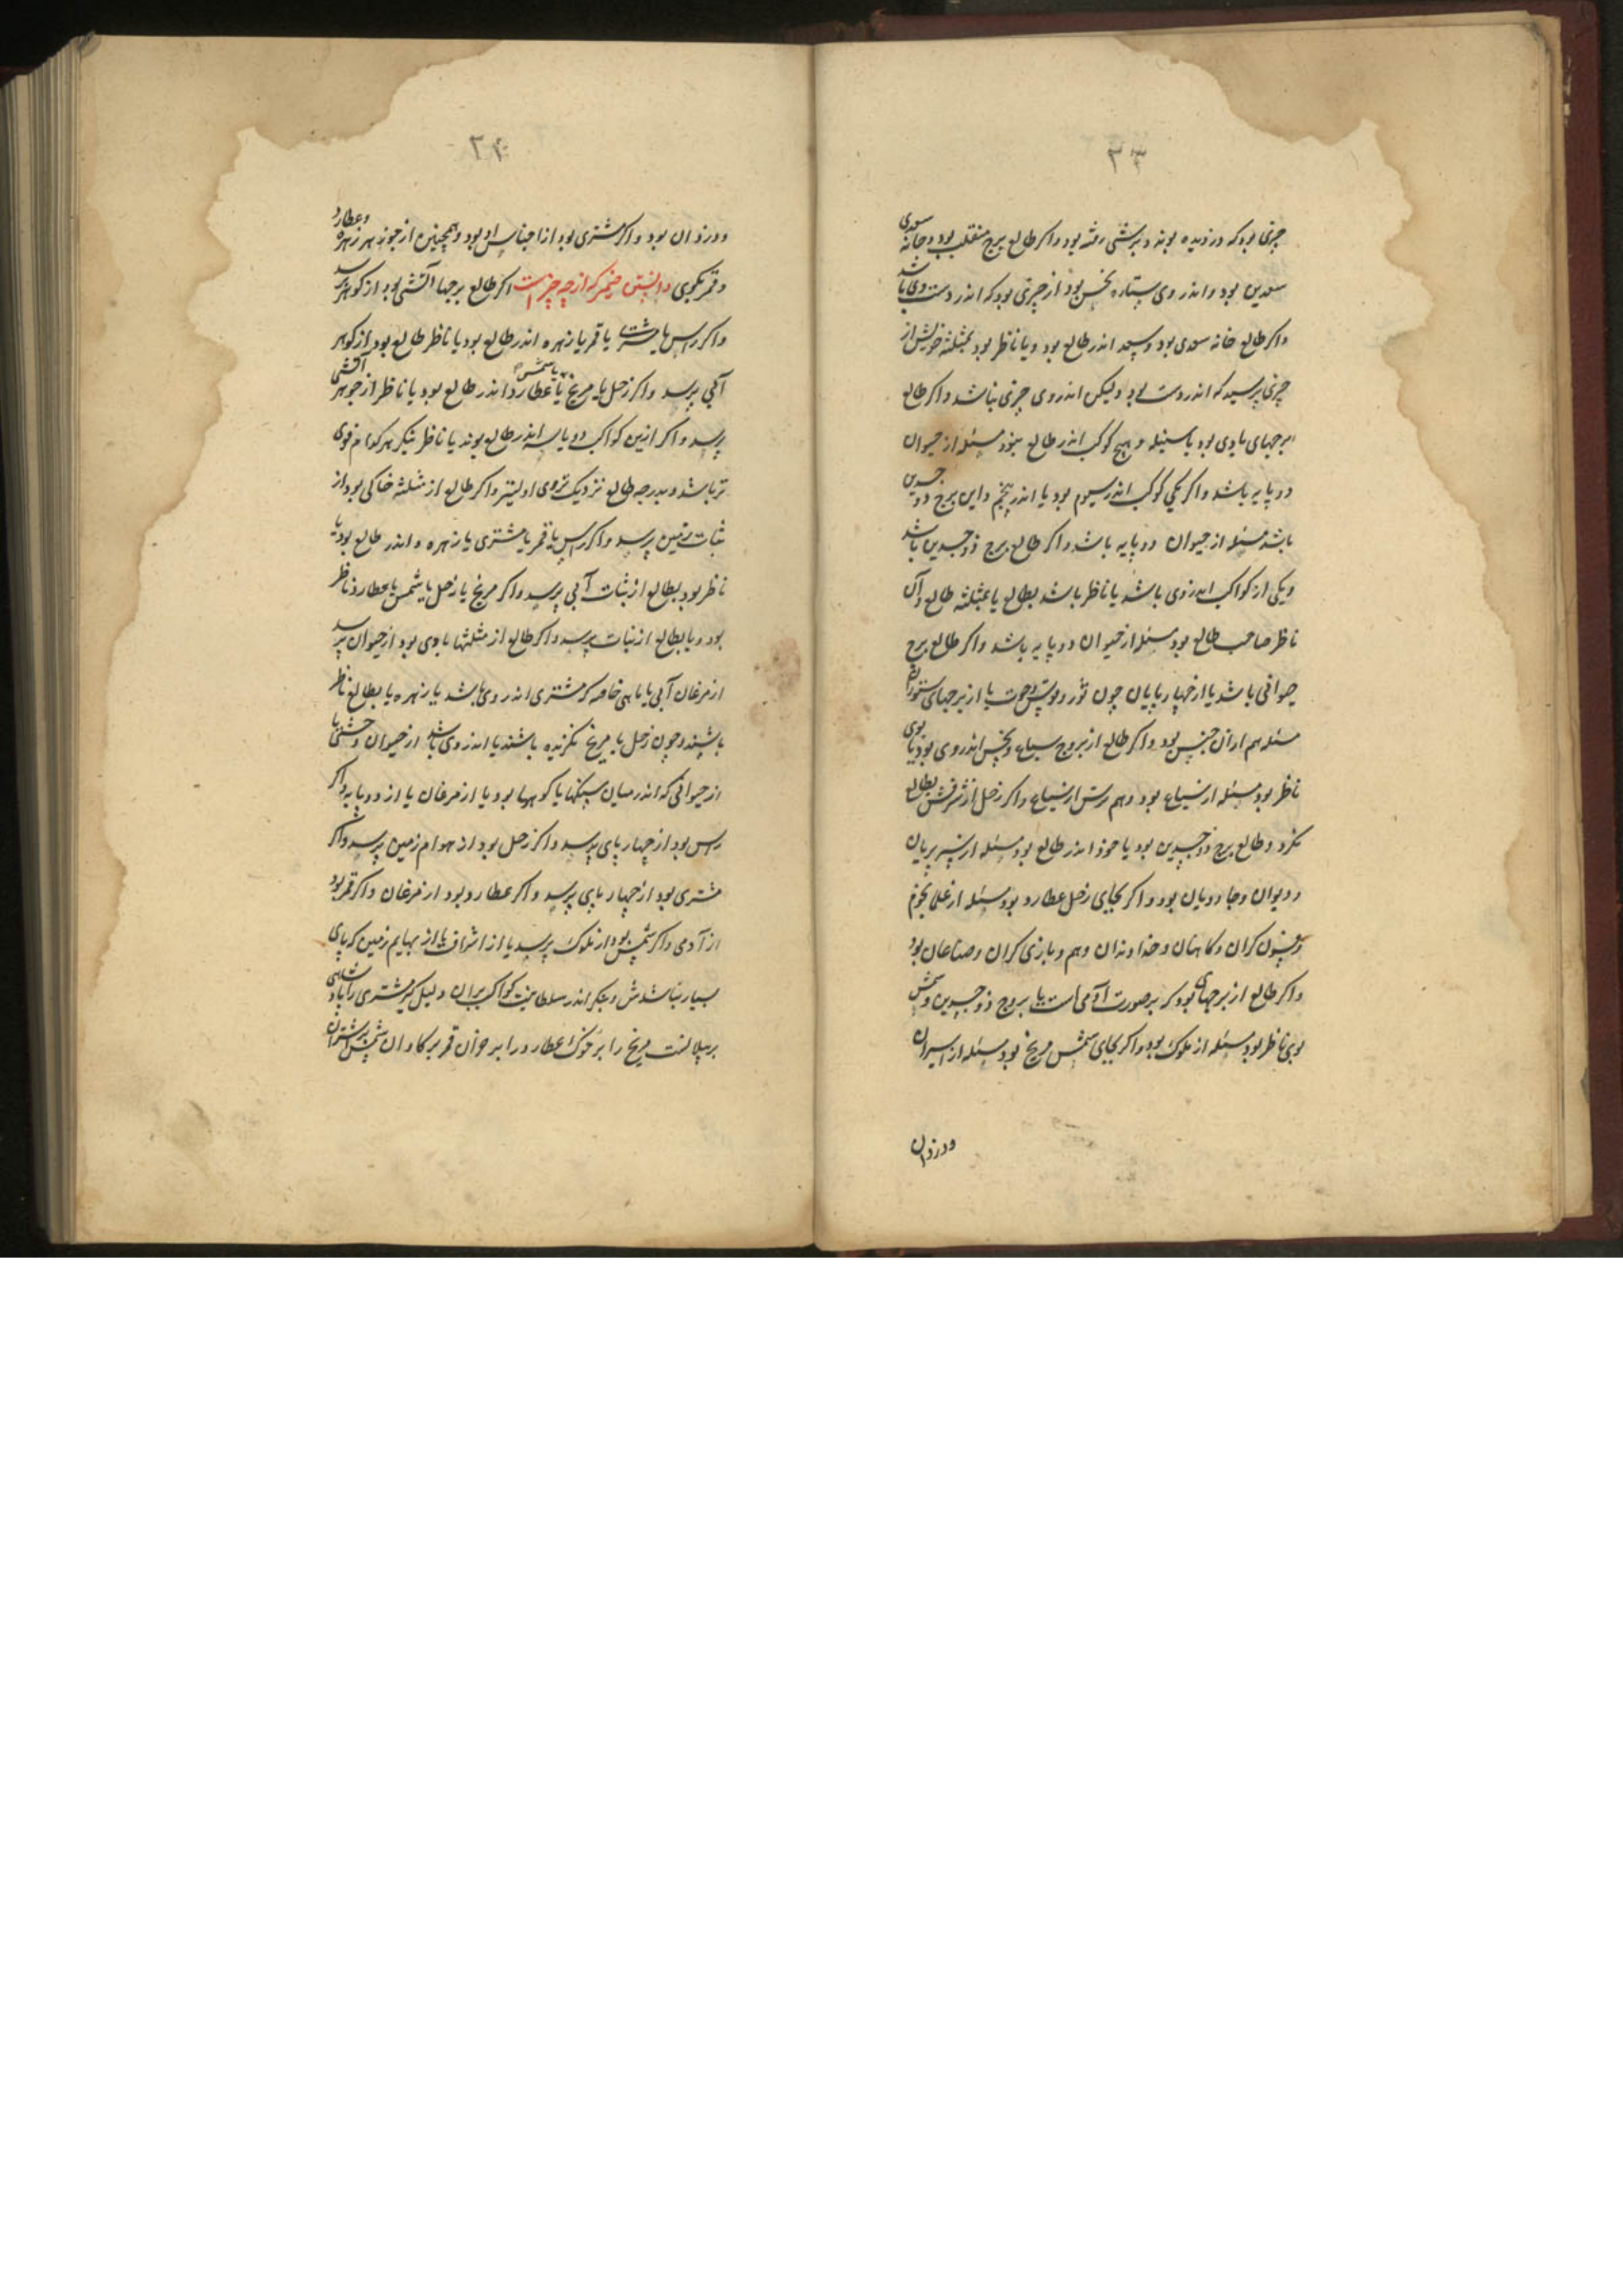 ۳۳
چیزی بود که دزدیده بوند و بزشتی رفته بود و اکر طالع برج منقلب بود و خانه سعدی
سعدین بود و اندر وی ستاره نحس بود از چیزی بود که اندر دست وی باشد
و اکر طالع خانه سعدی بود و سعد اندر طالع بود و یا ناظر بود بمثلثه خویش از
چیزی پرسید که اندر دست بود ولیکن اندر وی چیزی نباشد و اکر طالع
برجهای بادی بود یا سنبله و هیچ کوکب اندر طالع نبود مسئله از حیوان
دو پایه باشد و اکر یکی کوکب اندر سیوم بود یا اندر پنجم و این برج ذو جسدین
باشد مسئله از حیوان دو پایه باشد و اکر طالع برج ذوجسدین باشد
و یکی از کواکب اندر وی باشد یا ناظر باشد بطالع یا بمثلثه طالع و آن
ناظر صاحب طالع بود مسئله از حیوان دو پایه باشد و اکر طالع برج
حیوانی باشد یا از چهار پایان چون ثور و حوت یا از برجهای ستوران
مسئله هم از آن جنس بود و اکر طالع از بروج سباع و نحس اندر وی بود یا بوی
ناظر بود مسئله از سباع بود و هم از سباع و اکر زحل از شرفش بطالع
نکرد و طالع برج ذوجسدین بود یا خود اندر طالع بود مسئله از پریان
و دیوان و جادویان بود و اکر بجای زحل عطارد بود مسئله از علم نجوم
و فسون کران و کاهنان و خداوندان وهم و بازی کران و صناعان بود
و اکر طالع از برجهای بود که بر صورت آدمی است یا بروج ذوجسدین و شمس
بوی ناظر بود مسئله از ملوک بود و اکر بجای شمس مریخ بود مسئله از اسیران
و دزدان
۳۴
و دزدان بود و اکر مشتری بود از اجناس او بود و همچنین از جوهر زهره و عطارد
و قمر بکوی دانستن ضمیر که از چه چیز است اکر طالع برجها آتشی بود از کوهر پرسد
و اکر راس یا مشتری یا قمر یا زهره اندر طالع بود یا ناظر طالع بود از کوهر
آبی پرسد و اکر زحل یا مریخ یا شمس یا عطارد اندر طالع بود یا ناظر از جوهر آتشی
پرسد و اکر ازین کواکب دو یا سه اندر طالع بوند یا ناظر بنکر هر کدام قوی
تر باشد و بدرجه طالع نزدیک تر وی اولیتر و اکر طالع از مثلثه خاکی بود از
نبات زمین پرسد و اکر راس یا قمر یا مشتری یا زهره و اندر طالع بود یا
ناظر بود بطالع از نبات آبی پرسد و اکر مریخ یا زحل یا شمس یا عطارد ناظر
بود و یا بطالع از نبات پرسد و اکر طالع از مثلثها بادی بود از حیوان پرسد
از مرغان آبی یا ماهی خاصه که مشتری اندر وی باشد یا زهره یا بطالع ناظر
باشند و چون زحل یا مریخ نکرنده باشند یا اندر وی باشد از حیوان وحشی یا
از حیوانی که اندر میان سنکها یا کوهها بود یا از مرغان یا از دو پایه و اکر
راس بود از چهار پای پرسد و اکر زحل بود از هوام زمین پرسد و اکر
مشتری بود از چهار پای پرسد و اکر عطارد بود از مرغان و اکر قمر بود
از آدمی و اکر شمس بود از ملوک پرسد یا از اشراف یا از بهایم زمین که پای
بسیار نباشدش و بنکر اندر سلطانیت کواکب بران دلیل کن مشتری را شاهی
بر پیلانست مریخ را بر خوک عطارد را بر خران قمر بر کاوان شمس بر شتران